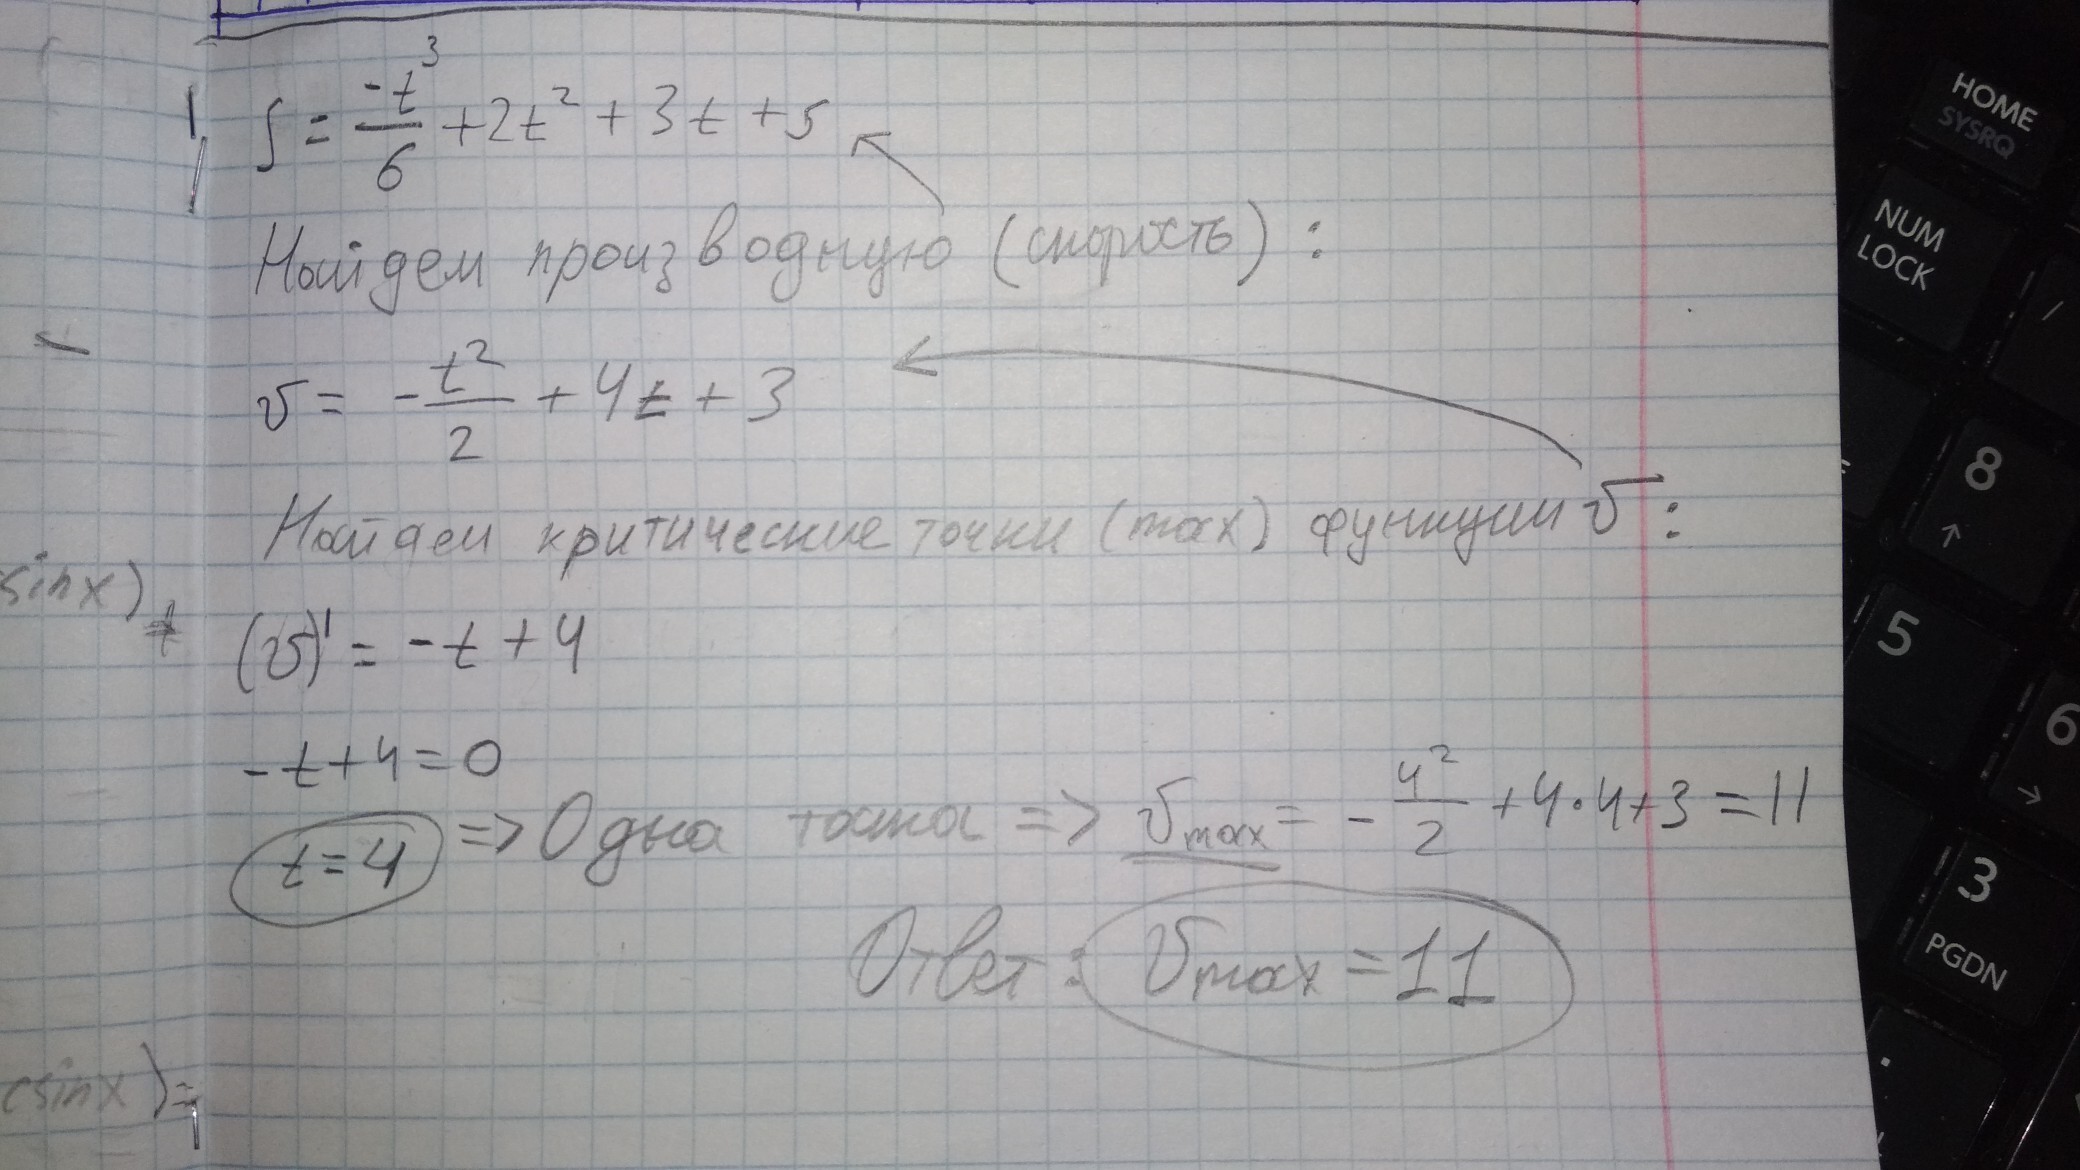 S = -t³/6 + 2t² + 3t + 5
Найдем производную (скорость) :
v = - t²/2 + 4t + 3
Найдем критические точки (max) функции v :
(v)' = -t + 4
-t + 4 = 0
t = 4 => Одна точка => vmax = - 4²/2 + 4·4+3 = 11
Ответ : vmax = 11
sinx)
+
csinx) =
HOME
SYSRQ
NUM
LOCK
/
8
↑
5
6
→
3
PGDN
.